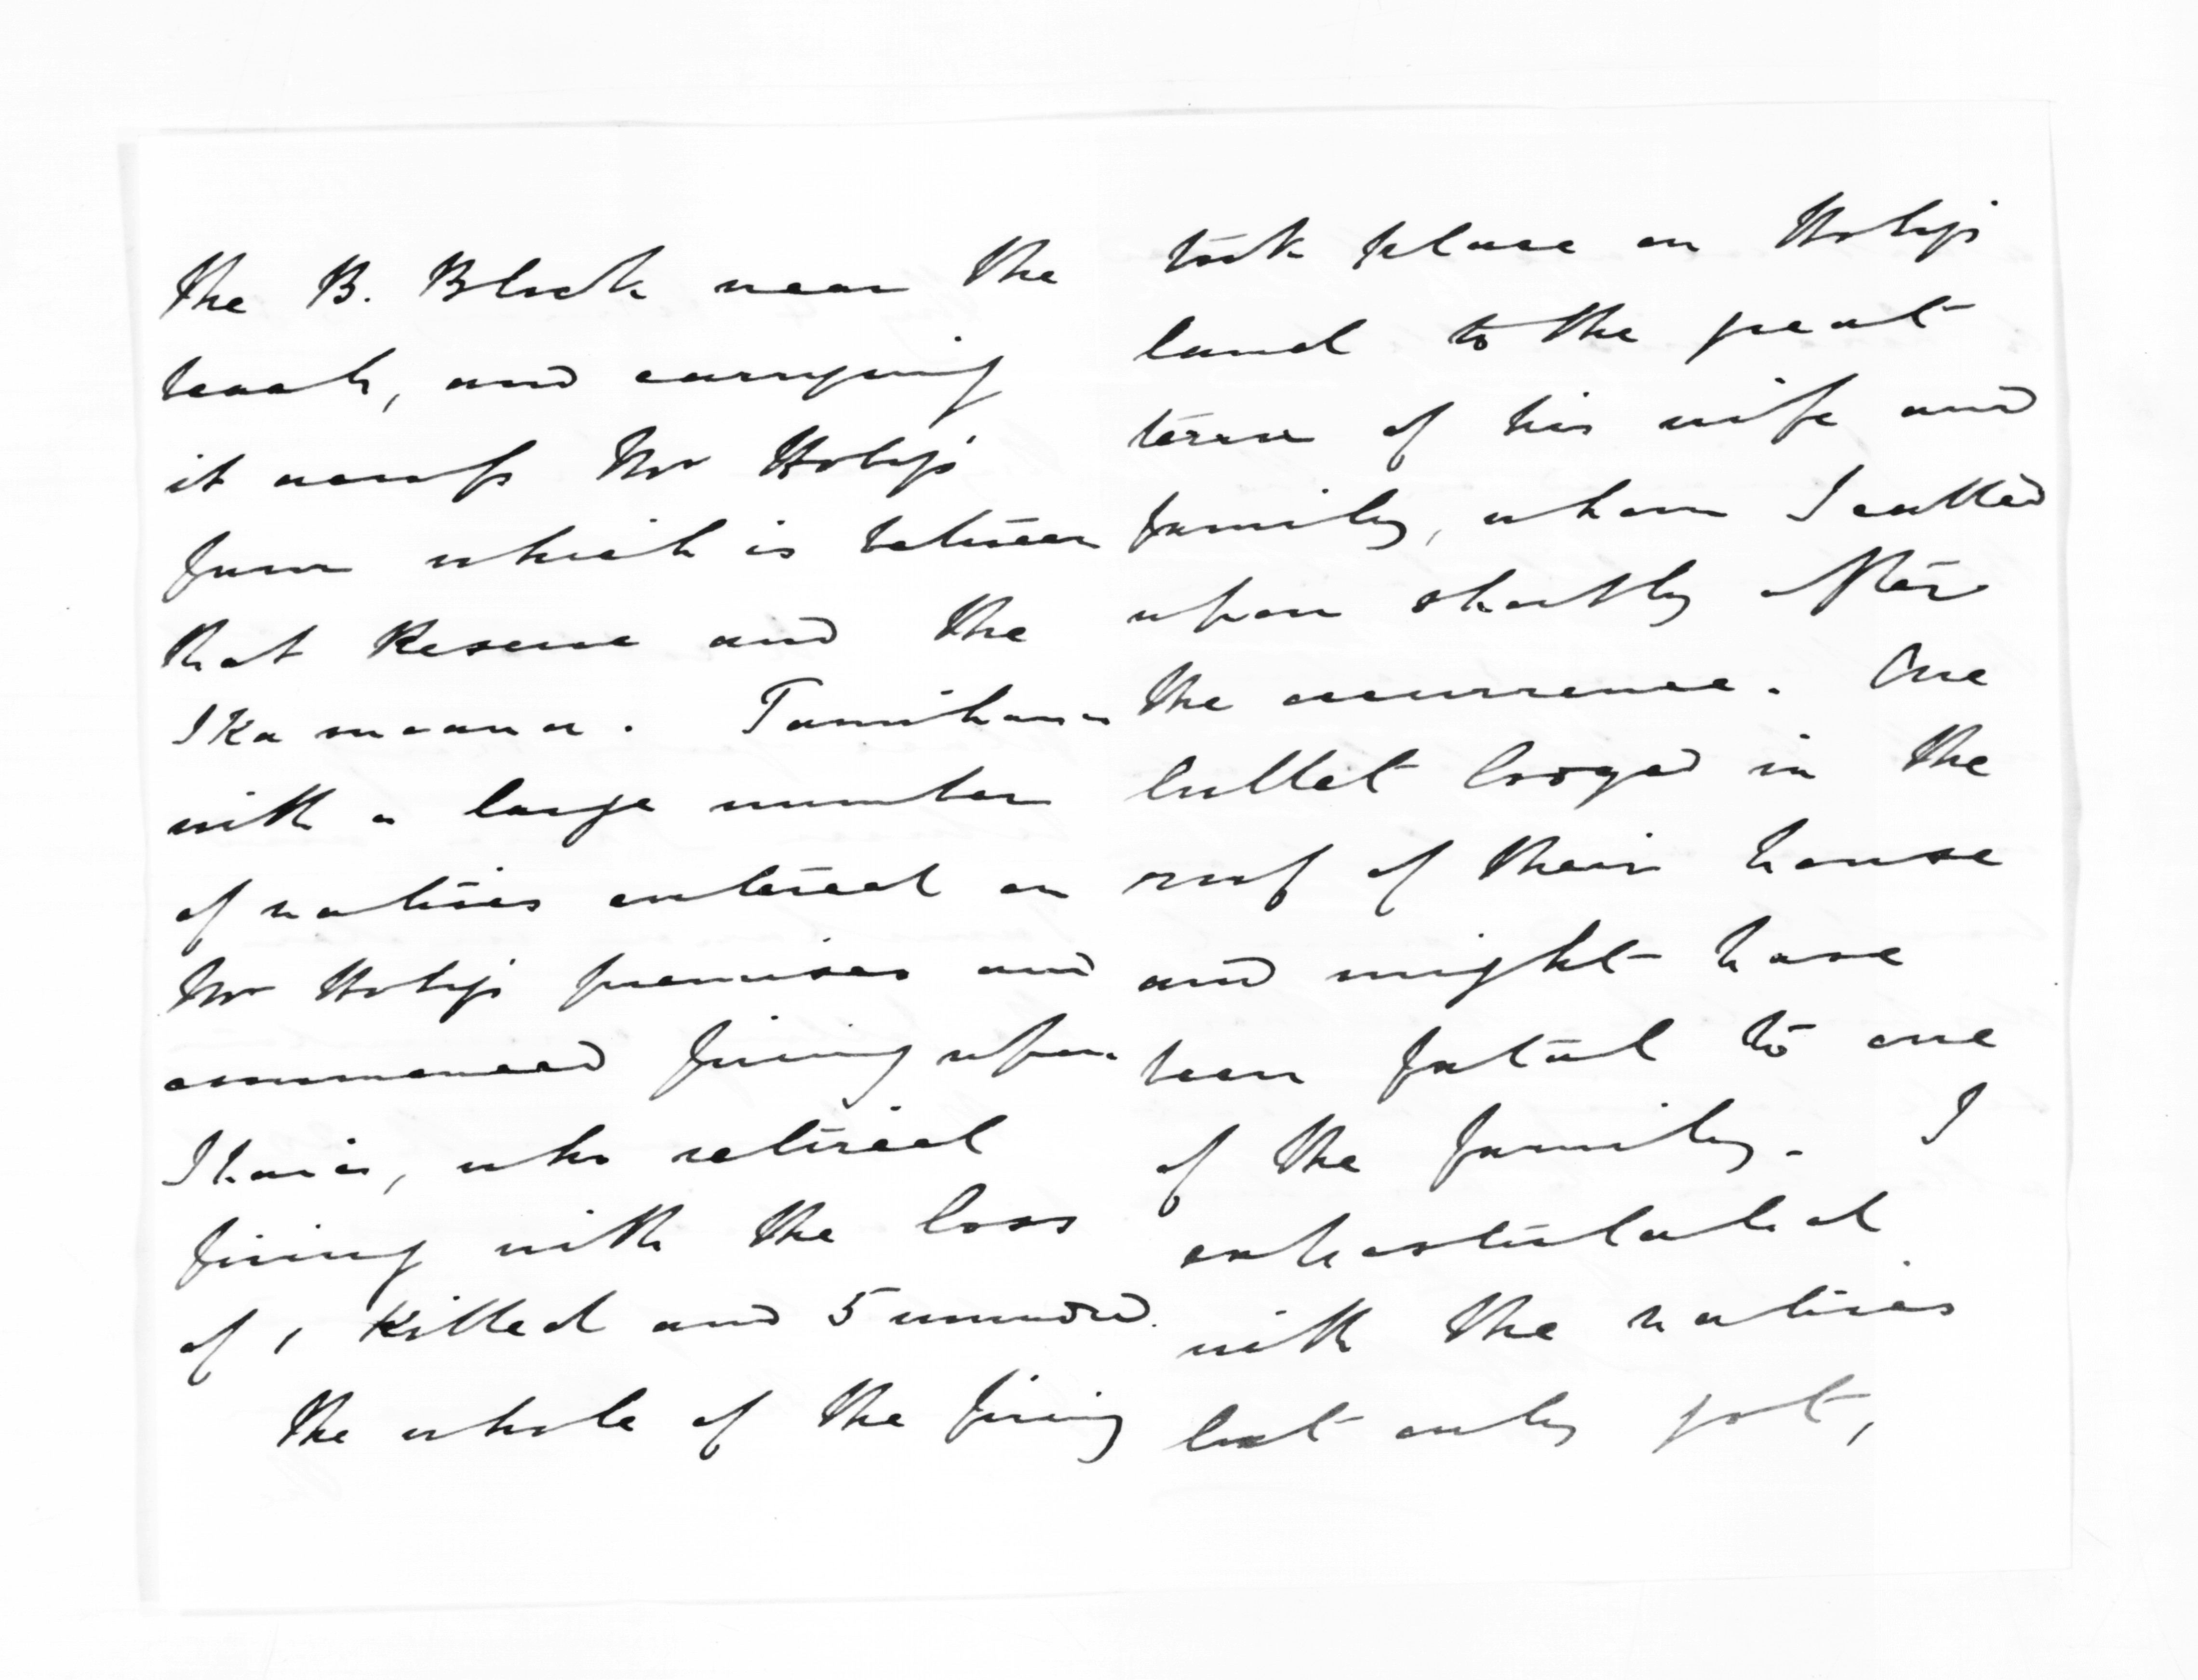 the B. Block near the
beach, and carrying
it across Mr Hoby's
farm which is between
that Reserve and the
Ikamoana. Tamihana
with a large number
of natives entered on
Mr Hoby's premises and
commenced firing upon
Ihaia, who retired
firing with the loss
of 1 killed and 5 wounded.
The whole of the firing
took place on Hoby's
land to the great
terror of his wife and
family, whom I called
upon shortly after
the occurrence. One
bullet lodged in the
roof of their house
and might have
been fatal to one
of the family. I
expostulated
with the natives
but only got,